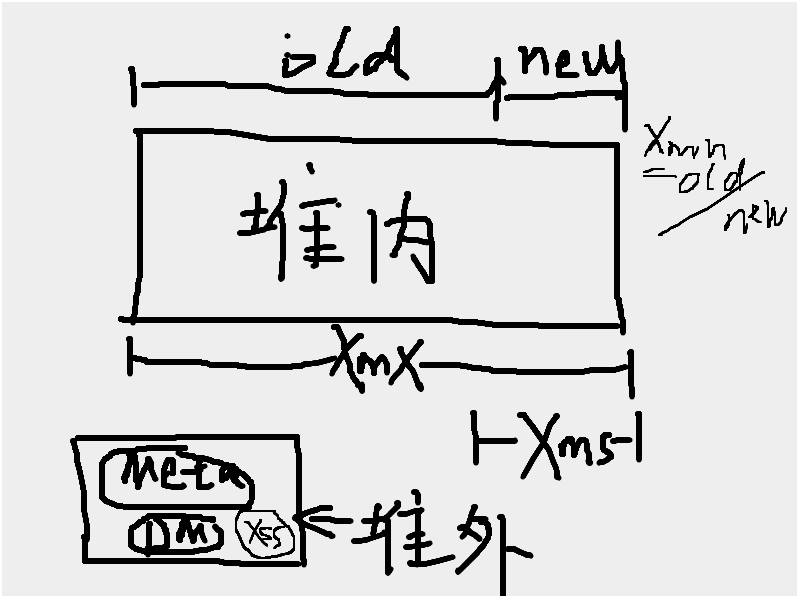 old new
Xmn
=old/
new
堆内
Xmx
Xms
Meta
DM Xss
堆外